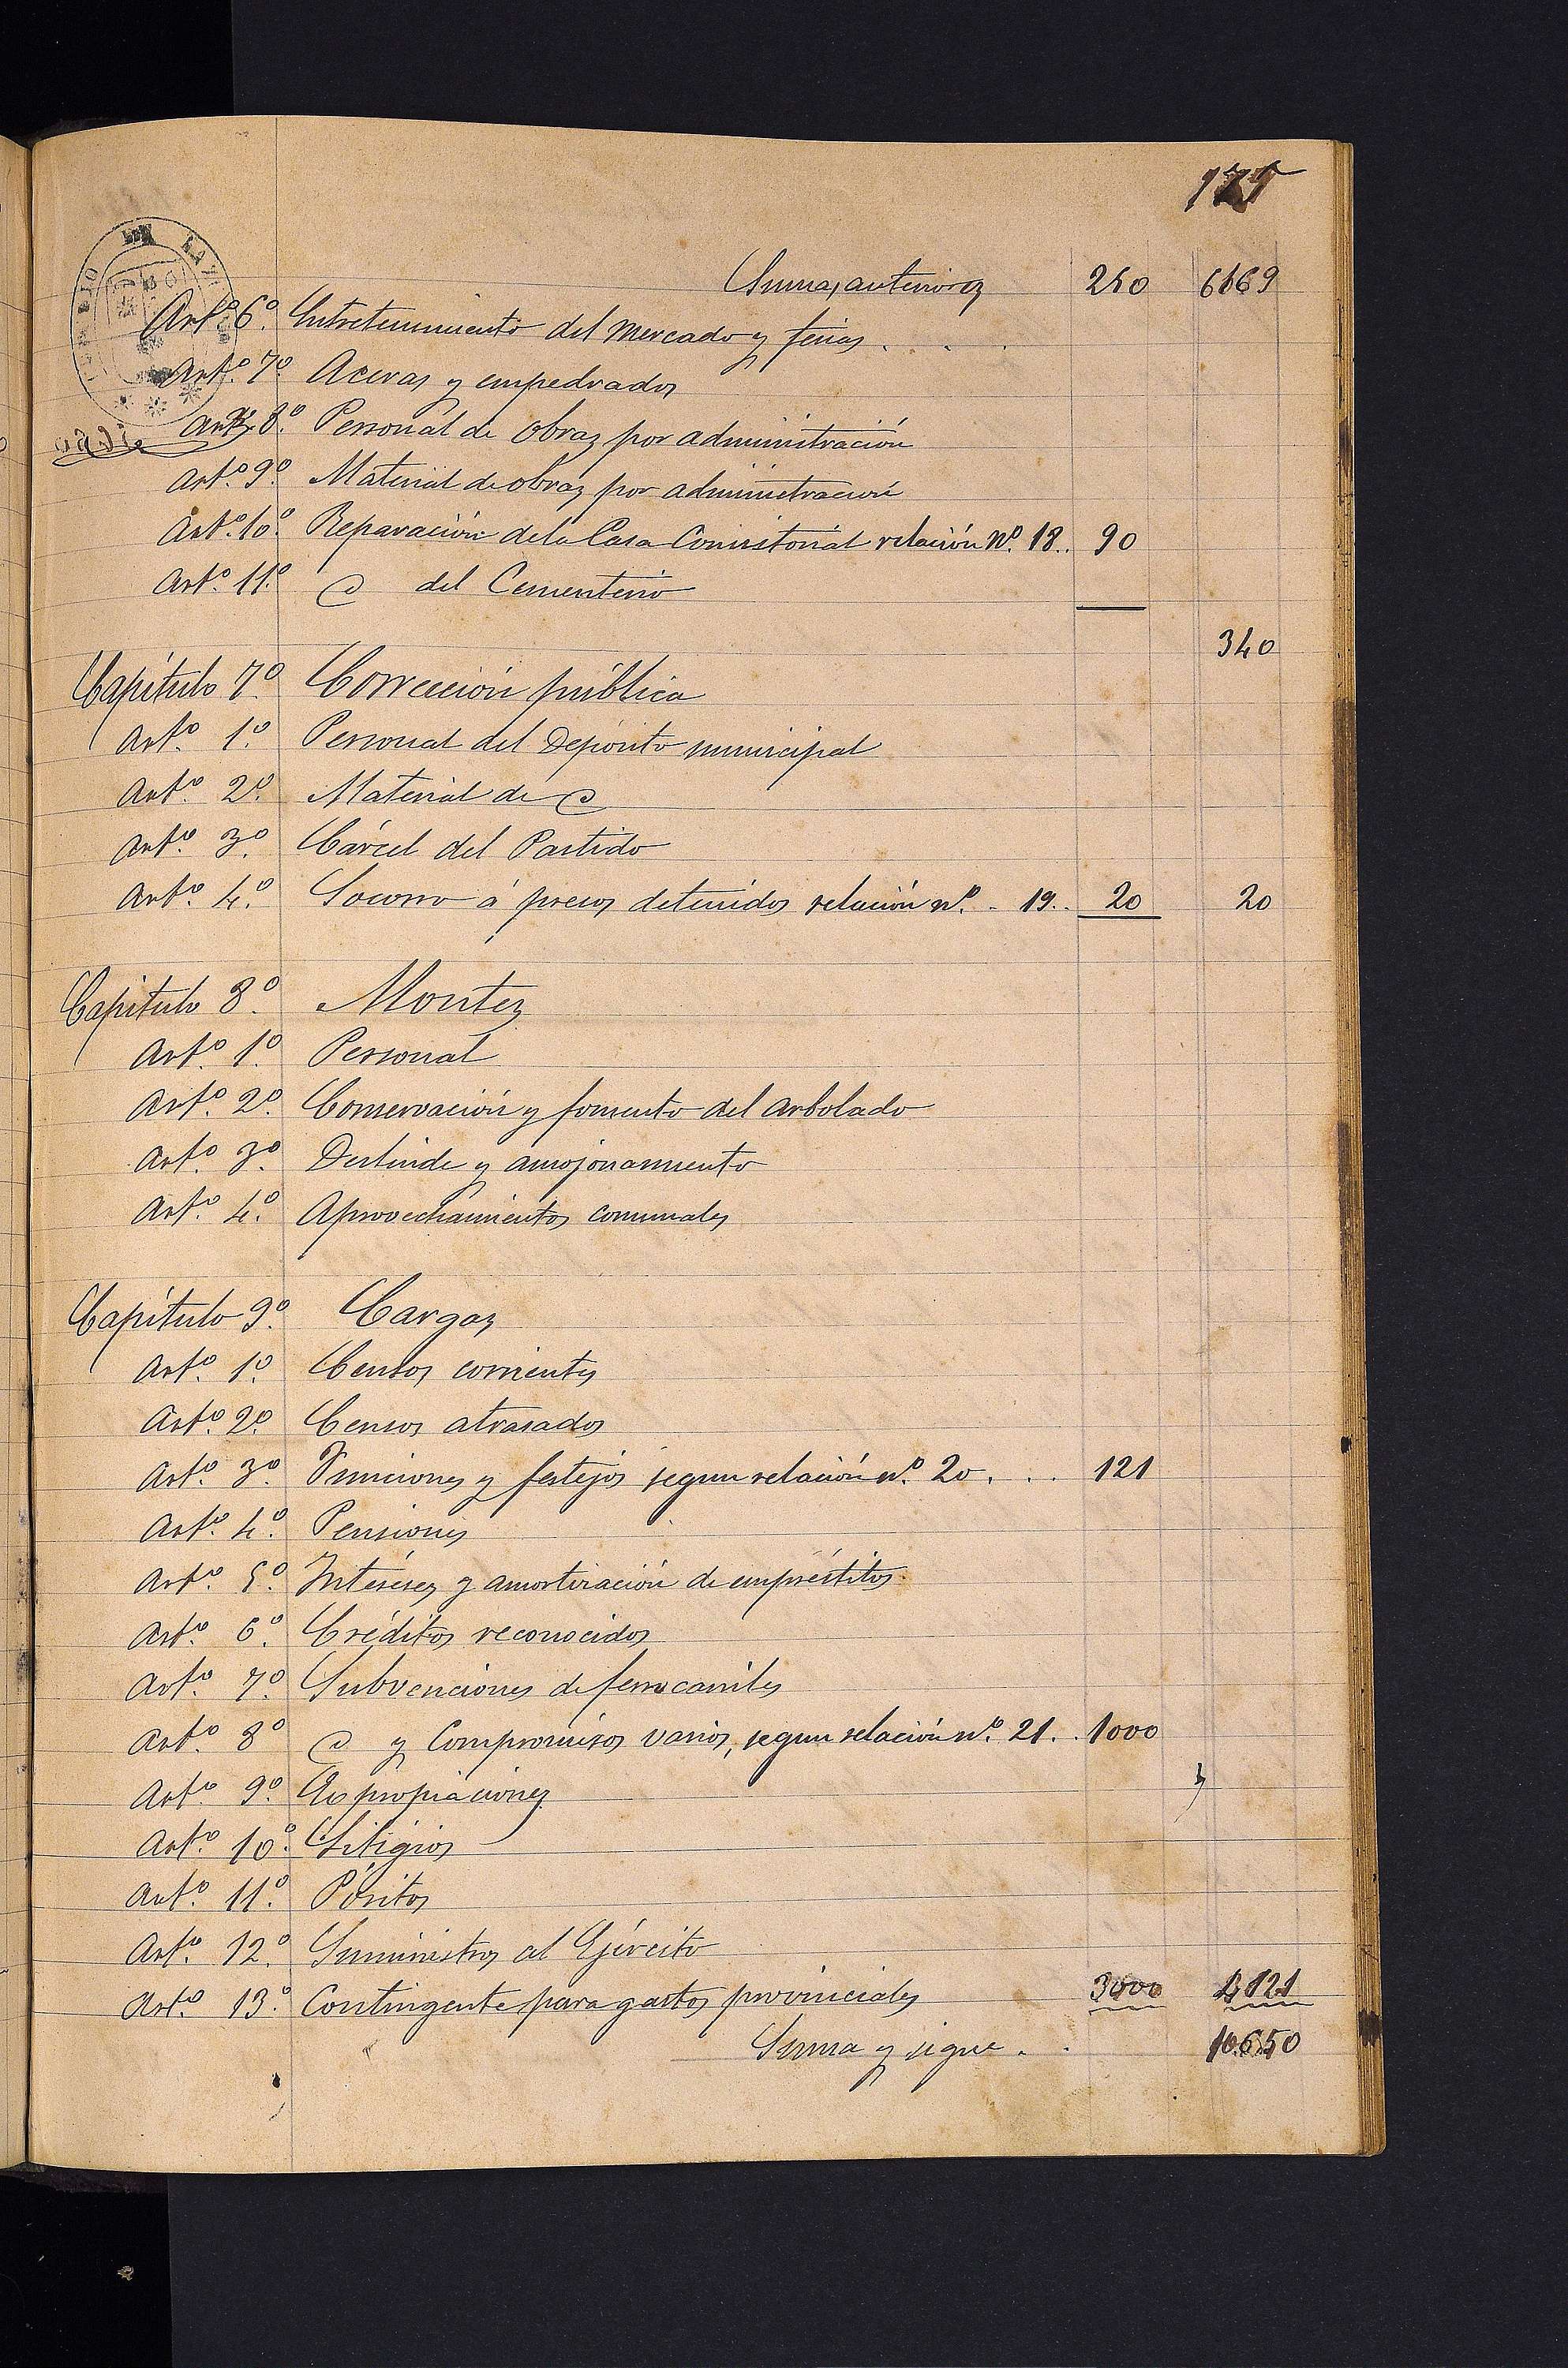 Sumas anteriores 250 6169
Artº 6º. Entretenimiento del mercado y ferias . . .
Artº. 7º Aceras y empedrados
Artº 8º. Personal de obras por administración
Artº. 9º. Material de obras por administración
Artº. 10º. Reparación de la Casa Consistorial relación Nº. 18. . 90
Artº. 11º. del Cementerio
340
Capítulo 7º. Corrección pública
Artº. 1º. Personal del Depósito municipal
Artº. 2º. Material de
Artº. 3º. Cárcel del Partido
Artº. 4º. Socorro á presos detenidos relación nº. . 19. . 20 20
Capítulo 8º. Montes
Artº. 1º. Personal
Artº. 2º. Conservación y fomento del arbolado
Artº. 3º. Deslinde y amojonamiento
Artº. 4º. Aprovechamientos comunales
Capítulo 9º. Cargas
Artº. 1º. Censos corrientes
Artº. 2º. Censos atrasados
Artº. 3º. Funciones y festejos segun relación nº. 20. . . 121
Artº. 4º. Pensiones
Artº. 5º. Intéreses y amortización de empréstitos
Artº. 6º. Créditos reconocidos
Artº. 7º. Subvenciones de ferrocarriles
Artº. 8º y Compromisos varios, segun relación nº. 21. . 1000
Artº. 9º. Expropiaciones
Artº. 10º. Litigios
Artº. 11º. Pósitos
Artº. 12º. Suministros al Ejército
Artº. 13º. Contingente para gastos provinciales 3000 4121
Suma y sigue . . 10650